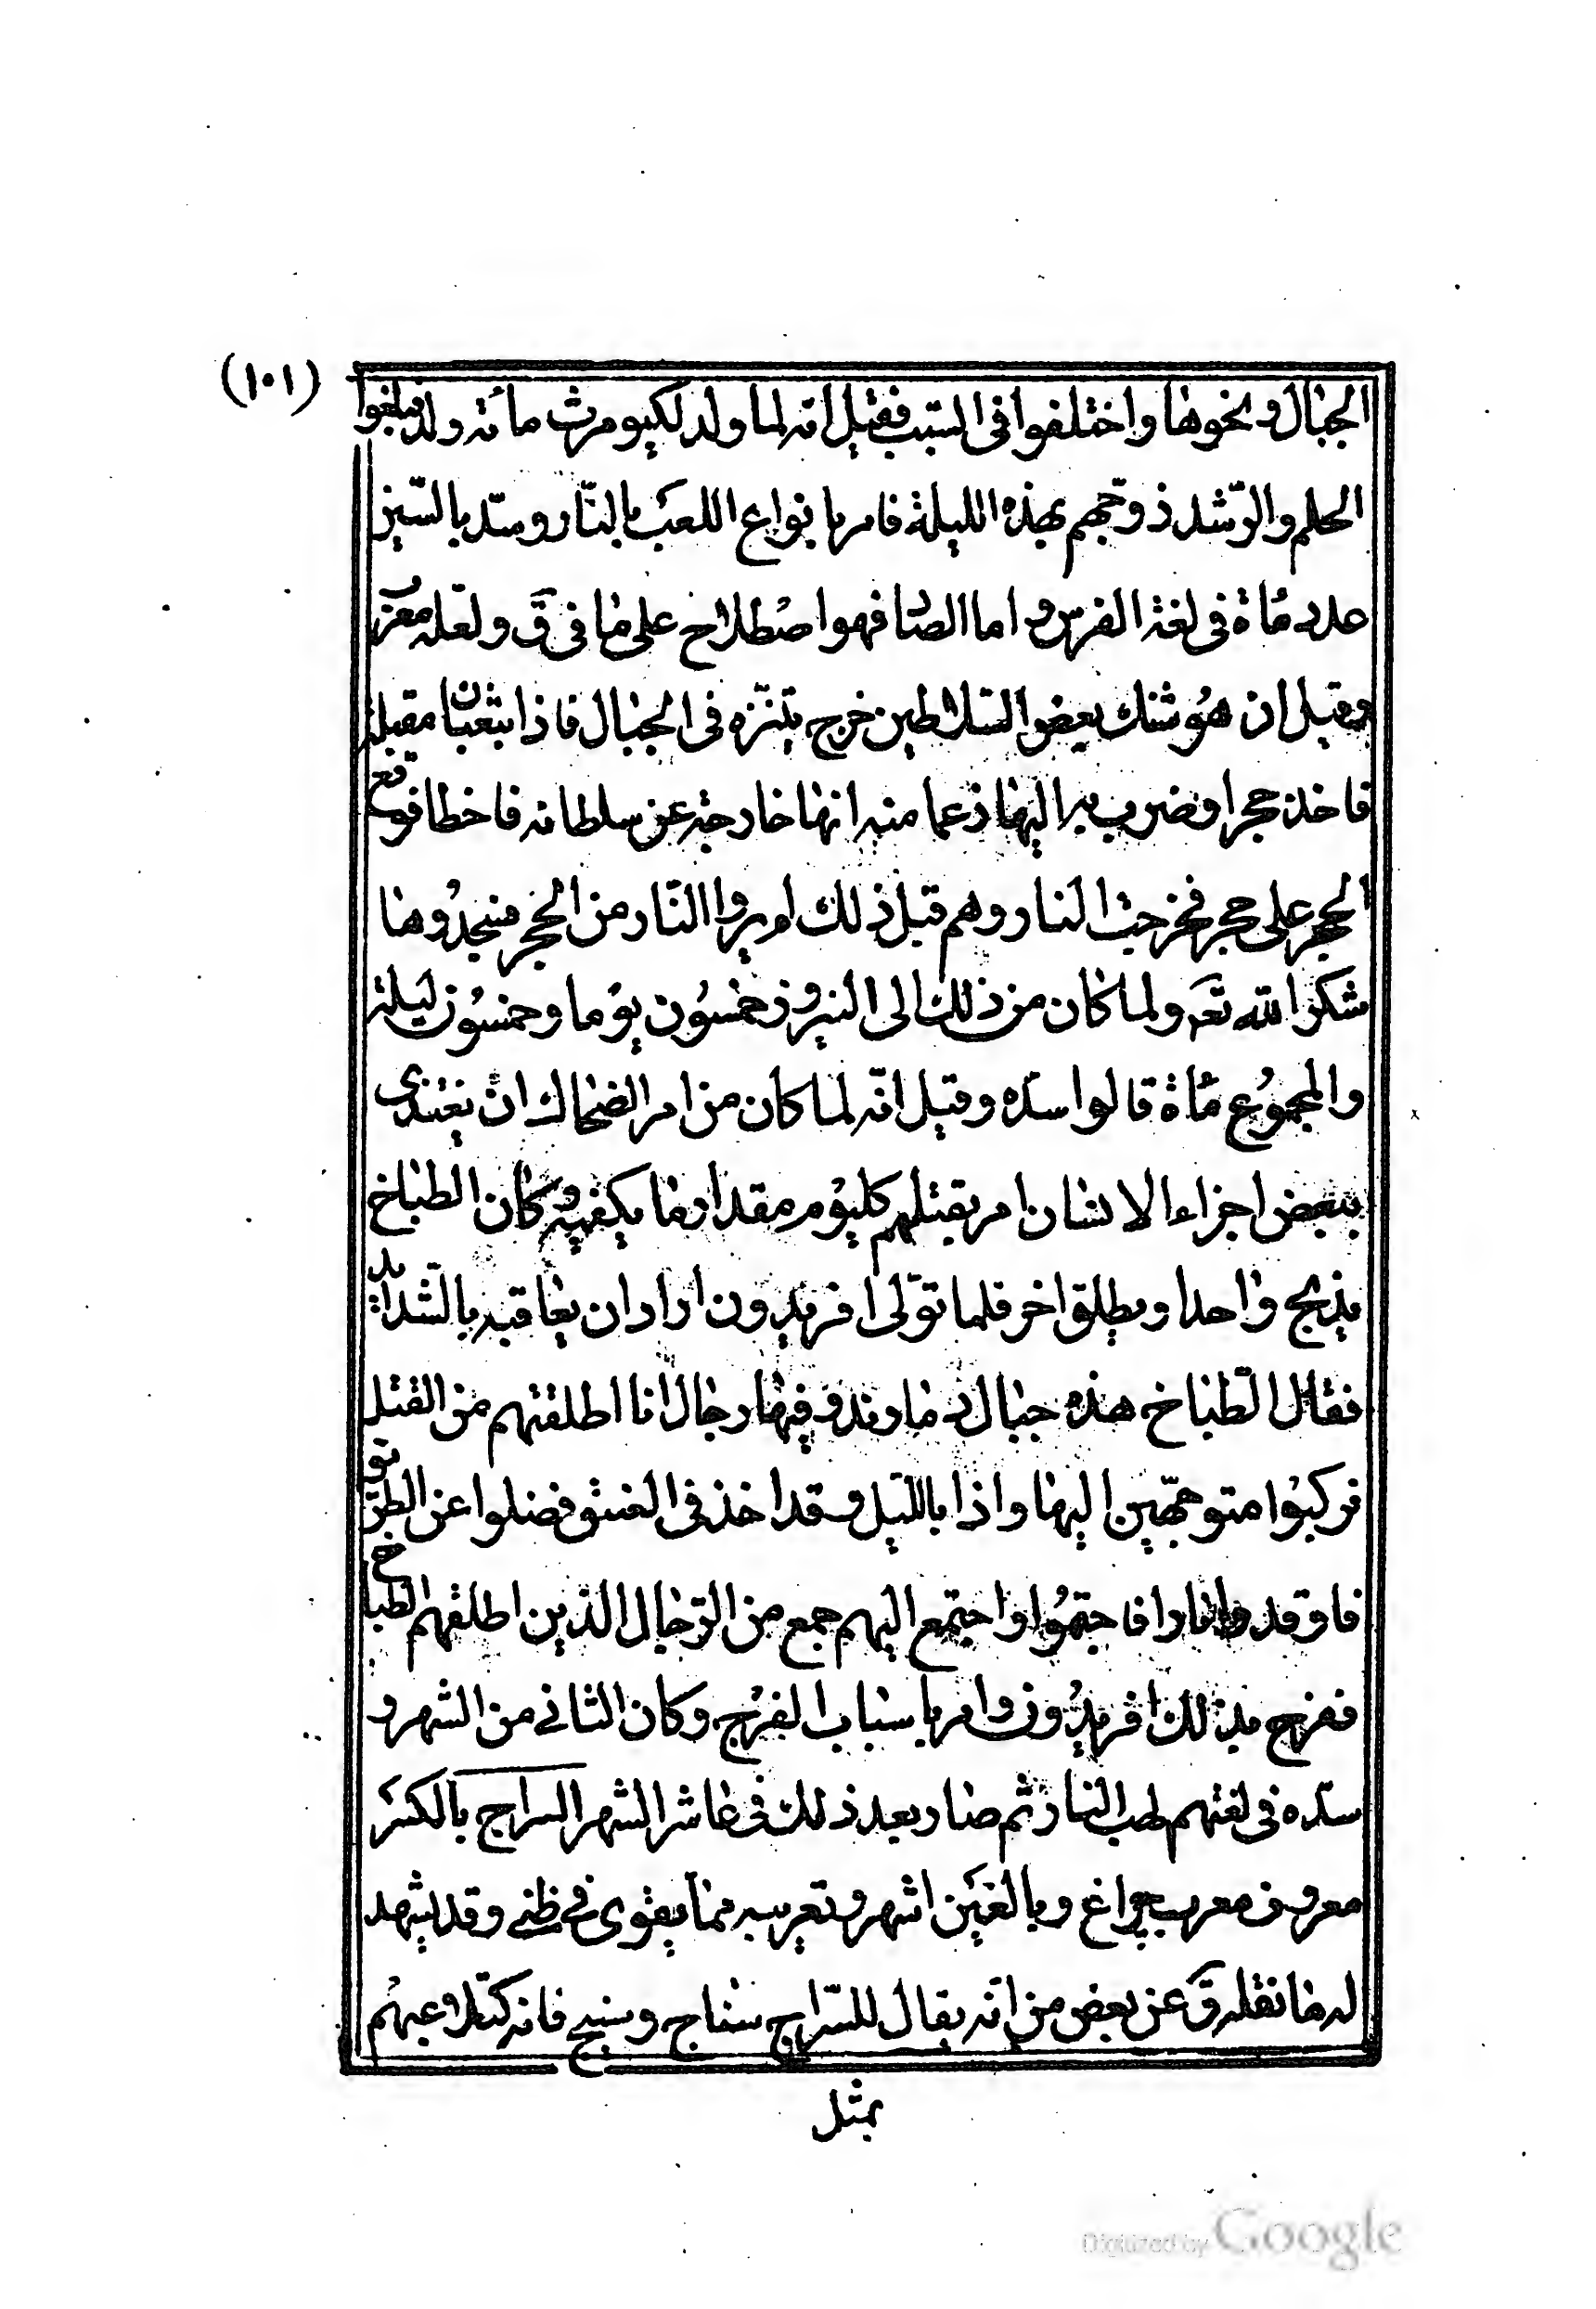 (١٠١)
الجبال ونحوها واختلفوا فى السبب فقيل انه لما ولد لكيومرث مائة ولد فبلغوا
الحلم والرّشد زوّجهم بهذه الليلة فامر بانواع اللعب بالنّار وسدّ بالسّين
عدد مُاة فى لغة الفرس و اما الصّاد فهو اصُطلاح على ما فى ق ولعله معرّب
وقيل ان هُوشنك بعض السّلاطين خرج يتنزّه فى الجبال فاذا بثعبان مقبلة
فاخذ حجرا وضرب به اليها زعما منه انها خارجة عن سلطانه فاخطا فوقع
الحجر على حجر فخرجت النار وهم قبل ذلك لم يروا النّار من الحجر فسجدُوها
شكرا لله تعه ولما كان من ذلك الى النيروز خمسُون يوُما وخمسُون ليلة
والمجموُع مُاة قالوا سدّه وقيل انّه لما كان من امر الضحاك ان يغتذى
ببعض اجزاء الانسان امر بقتلهم كليوُم مقدار ما يكفيه وكان الطباخ
يذبح واحدا ويطلق اخر فلما توّلى افريدون اراد ان يعاقبه بالشّدائد
فقال الطّباخ هذه جبال دماوند وفيها رجال انا اطلقتهم من القتل
فركبوُا متوجّهين اليها واذا بالليل وقد اخذ فى الغسق فضلوا عن الطريق
فاوقدوا نارا فاجتمعُوا واجتمع اليهم جمع من الرّجال الذين اطلقهم الطباخ
ففرح بذلك افريدُون وامر باسباب الفرُج وكان الثانى من الشهر و
سدّه فى لغتهم لهب النار ثم صار بعد ذلك فى عاشر الشهر السراج بالكسَر
معروف معرب چراغ وبالغيَن اشهر وتعريبه ممّا يقوى فى ظنى وقد يشهد
له ما نقله ق عن بعض من انه يقال للسّراج سناج وسنيج فانه كتلاعبهُم
بمثل
Digitized by Google